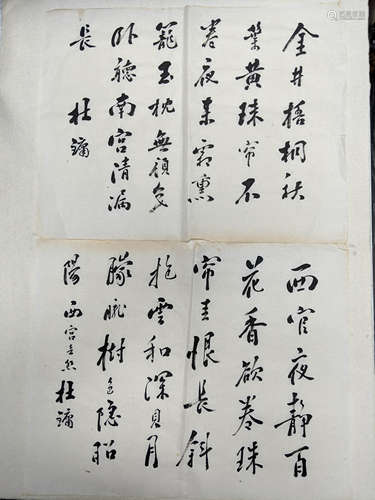 金井梧桐秋
葉黃珠帘不
卷夜來霜熏
籠玉枕無顏色
卧聽南宮清漏
長 杜鏞
西宮夜靜百
花香欲卷珠
帘春恨長斜
抱雲和深見月
朦朧樹色隱昭
陽 西宮春怨 杜鏞